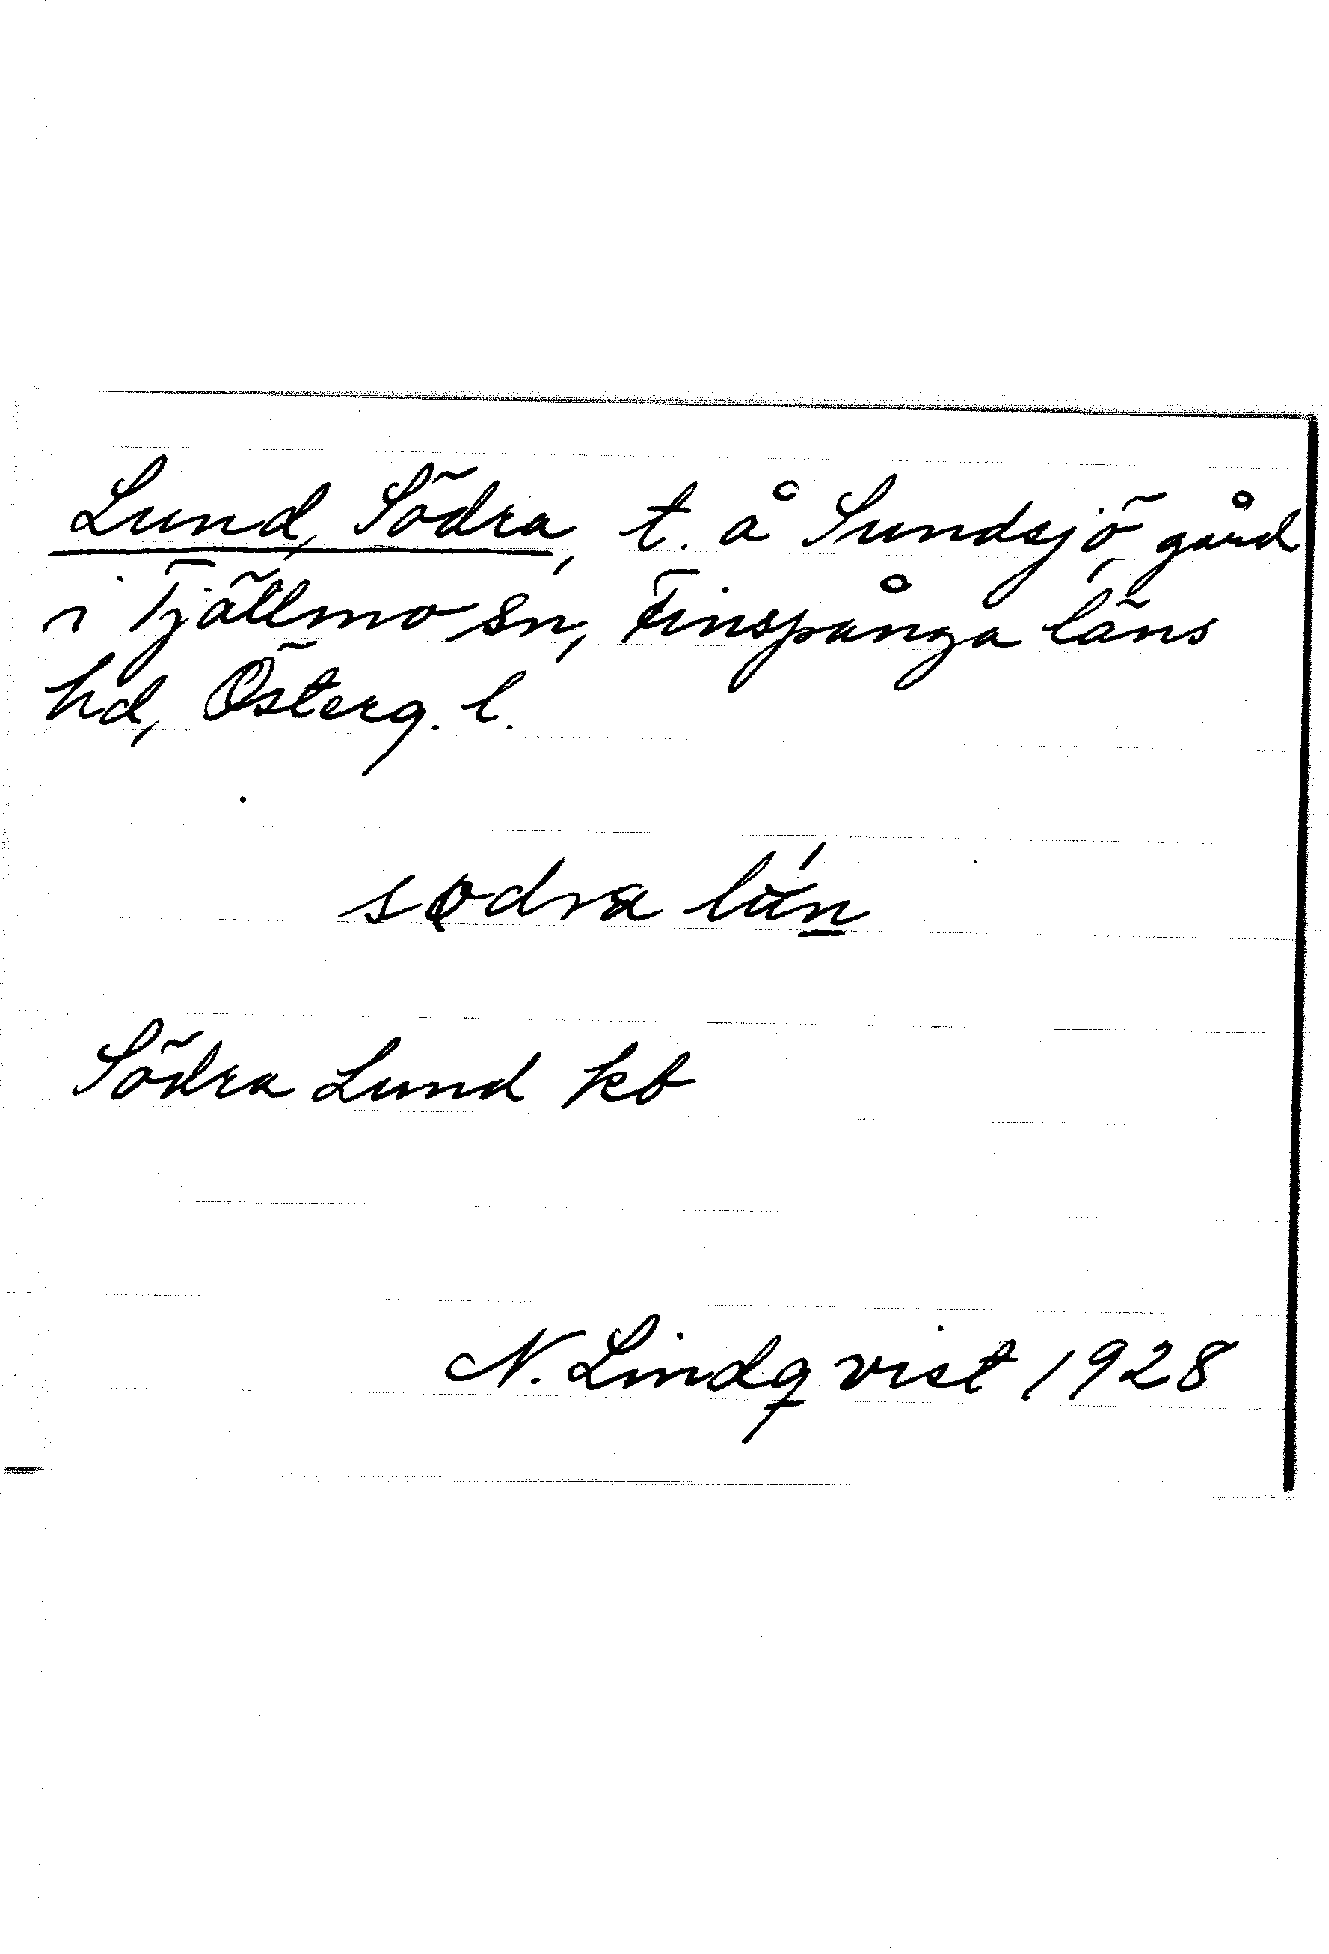 Lund, Södra, t. å Sundsjö, gård
i Tjällmo sn, Finspånga läns
hd, Österg. l.
sødra lun̲
Södra Lund kb
N. Lindqvist 1928